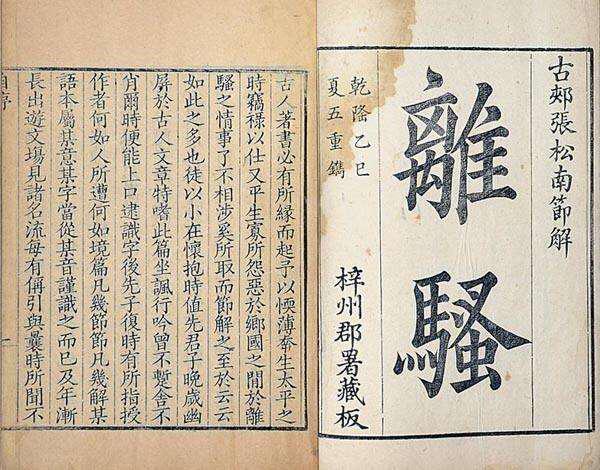 古郟張松南節解
離騷
乾隆乙巳
夏五重鐫
梓州郡署藏板
古人著書必有所緣而起予以愞薄奉生太平之
時竊祿以仕又平生寡所怨惡於鄉國之閒於離
騷之情事了不相涉奚所取而節解之至於云云
如此之多也徒以小在懷抱時值先君子晚歲幽
屏於古人文章特嗜此篇坐諷行吟曾不蹔舍不
肖爾時便能上口逮識字後先子復時有所指授
作者何如人所遭何如境篇凡幾節節凡幾解某
語本屬某意某字當從某音謹識之而已及年漸
長出遊文場見諸名流每有稱引與曩時所聞不